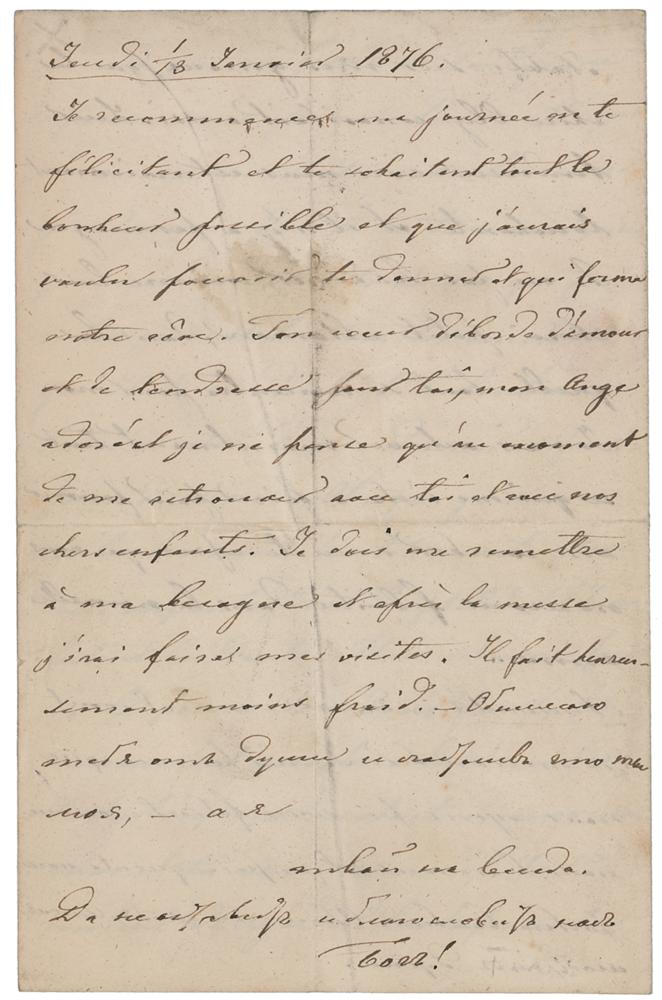 Jeudi 1/13 Janvier 1876.
Je recommence ma journée en te
félicitant et te souhaitant tout le
bonheur possible et que j'aurais
voulu pouvoir te donner et qui forme
notre rêve. Mon coeur déborde d'amour
et de tendresse pour toi, mon Ange
adoré et je ne pense qu'au moment
de me retrouver avec toi et avec nos
chers enfants. Je dois me remettre
à ma besogne et après la messe
j'irai faire mes visites. Il fait heureu-
sement moins froid. – Обнимаю
тебя отъ души и счастливъ что ты
моя, – а я
твой на всегда.
Да не оставитъ и благословитъ насъ
Богъ!